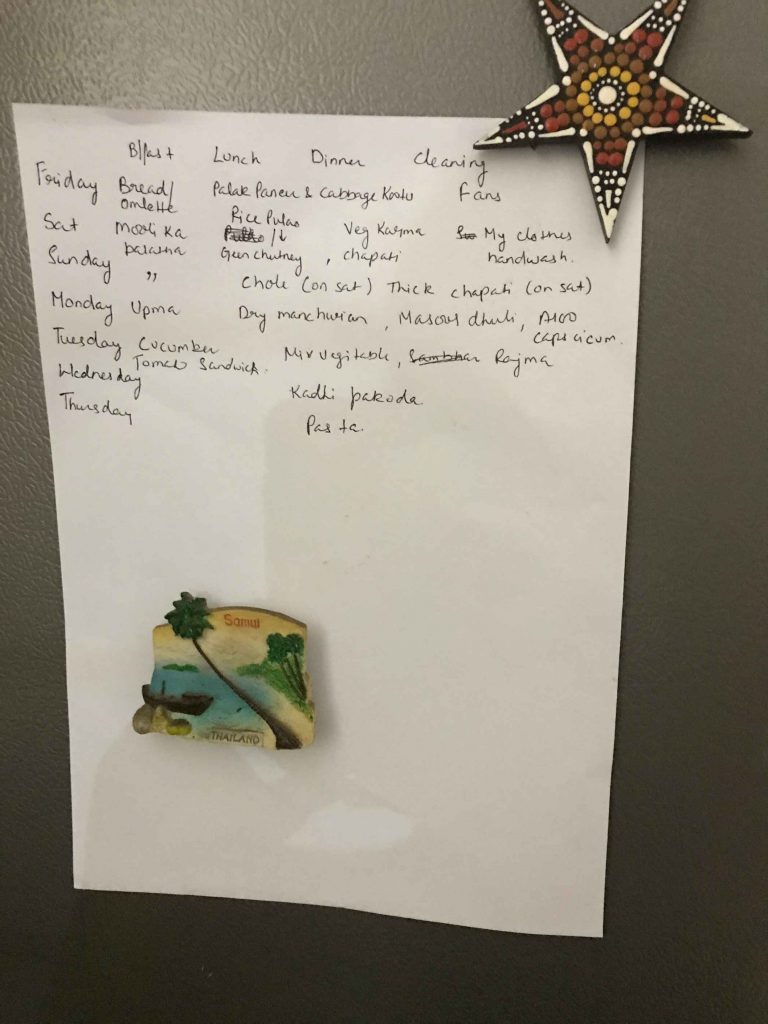 B/fast Lunch Dinner Cleaning
Friday Bread/ Palak Paneer & Cabbage Kootu Fans
omlette
Sat Mooli Ka Rice Pulao Veg Karma My clothes
paratha Green chutney , chapati handwash.
Sunday " Chole (on sat) Thick chapati (on sat)
Monday Upma Dry manchurian , Masoor dhuli, Aloo
capsicum.
Tuesday Cucumber Mix vegitable, Sambhar Rajma
Tomato Sandwich.
Wednesday Kadhi pakoda.
Thursday Pasta.
Samui
THAILAND